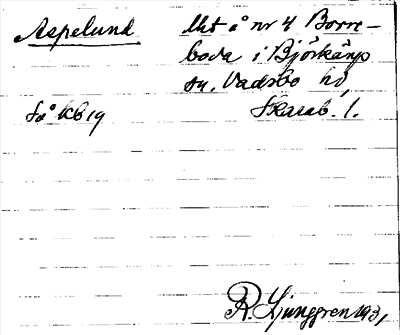 Aspelund
Uht å nr 4 Borre-
boda i Björkäng
sn, Vadsbo hd,
Skarab. l.
Så kb 19
R. Ljunggren 1931